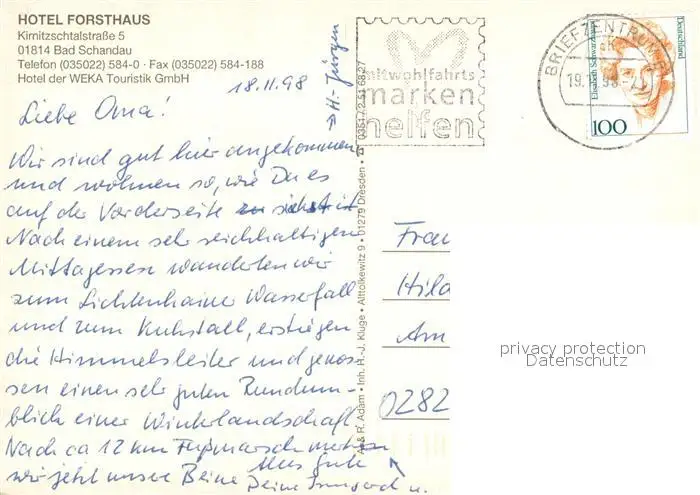 HOTEL FORSTHAUS
Kirnitzschtalstraße 5
01814 Bad Schandau
Telefon (035022) 584-0 · Fax (035022) 584-188
Hotel der WEKA Touristik GmbH
18.11.98
Liebe Oma!
Wir sind gut hier angekommen
und wohnen so, wie Du es
auf der Vorderseite siehst
Nach einem sehr reichhaltigen
Mittagessen wanderten wir
zum Lichtenhainer Wasserfall
und zum Kuhstall, erstiegen
die Himmelsleiter und genos-
sen einen sehr guten Rundum-
blick einer Winterlandschaft
Nach ca 12 km Fußmarsch merken
wir jetzt unsere Beine
Alles Gute
Deine Irmgard u.
→ H.-Jürgen
A. & R. Adam • Inh. H.-J. Kluge • Alttolkewitz 9 • 01279 Dresden • ☎ 0351/2 51 68 27
mitwohlfahrts
marken
helfen
BRIEFZENTRUM
19.11.98
Elisabeth Schwarzhaupt
Deutschland
100
Frau
Hild
Am
0282
privacy protection
Datenschutz